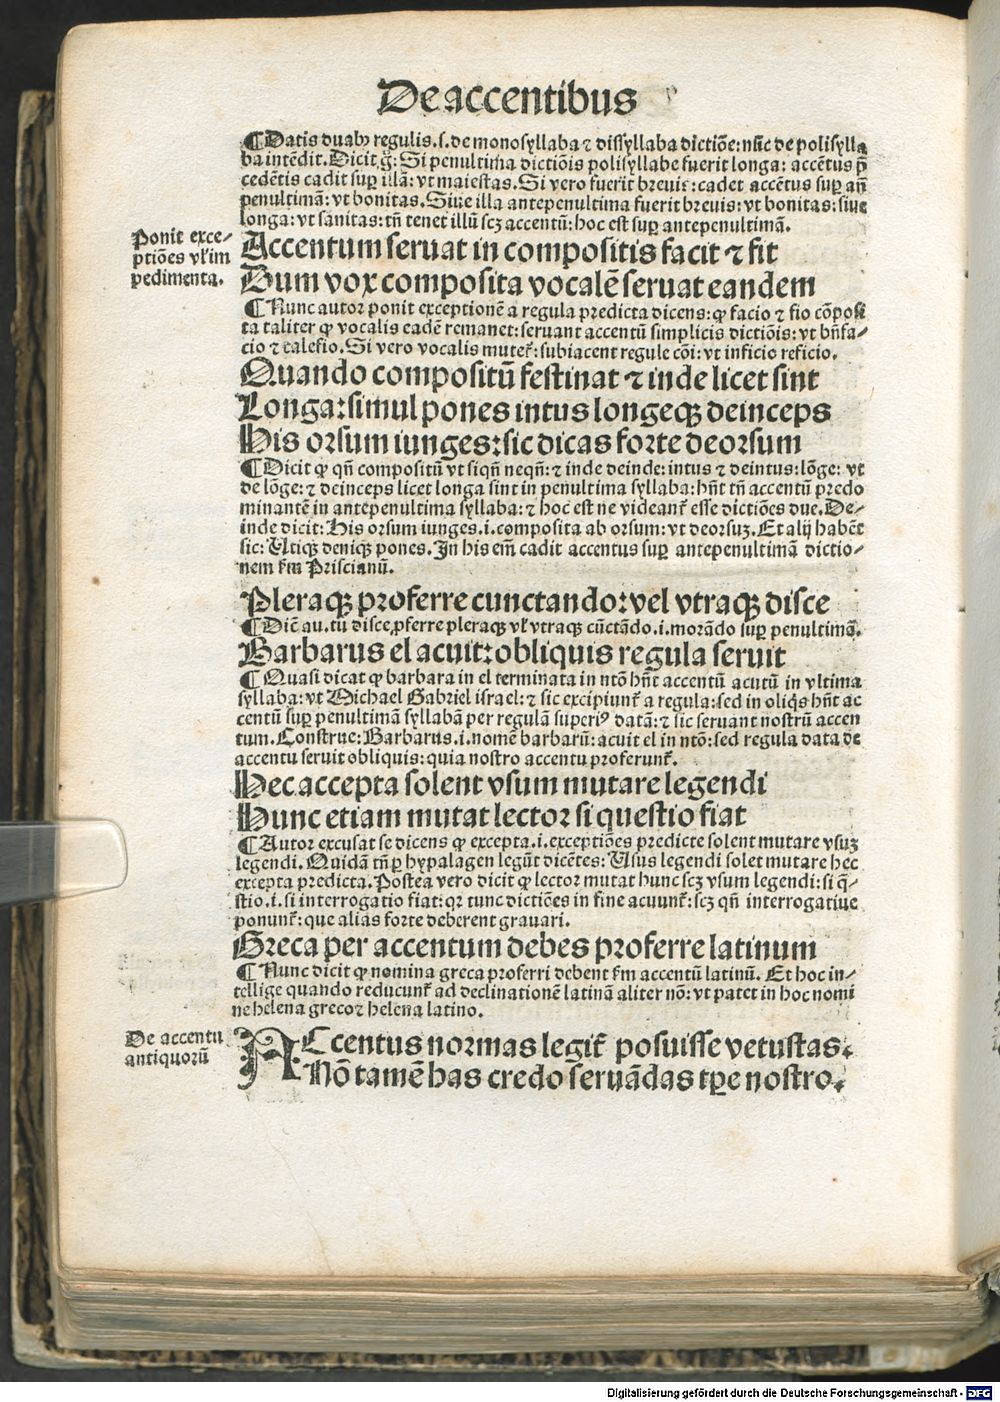 De accentibus
¶Datis duabꝰ regulis.s.de monosyllaba ⁊ dissyllaba dictiõe:nũc de polisylla
ba intẽdit.Dicit g̃:Si penultima dictiõis polisyllabe fuerit longa:accẽtus p̃
cedẽtis cadit suꝑ illã:vt maiestas.Si vero fuerit breuis:cadet accẽtus suꝑ añ
penultimã:vt bonitas.Siue illa antepenultima fuerit breuis:vt bonitas:siue
longa:vt sanitas:tñ tenet illũ scꝫ accentũ:hoc est suꝑ antepenultimã.
Ponit exce⸗
ptiões vl̃ im
pedimenta.
Accentum seruat in compositis facit ⁊ fit
Dum vox composita vocalẽ seruat eandem
¶Nunc autor ponit exceptionẽ a regula predicta dicens:ꝙ facio ⁊ fio cõposi
ta taliter ꝙ vocalis eadẽ remanet:seruant accentũ simplicis dictiõis:vt bñfa⸗
cio ⁊ calefio.Si vero vocalis muter̃:subiacent regule cõi:vt inficio reficio.
Quando compositũ festinat ⁊ inde licet sint
Longa:simul pones intus longeqꝫ deinceps
His orsum iunges:sic dicas forte deorsum
¶Dicit ꝙ qñ compositũ vt siqñ neqñ:⁊ inde deinde:intus ⁊ deintus:lõge:vt
de lõge:⁊ deinceps licet longa sint in penultima syllaba:hñt tñ accentũ predo
minantẽ in antepenultima syllaba:⁊ hoc est ne videanť esse dictiões due.De⸗
inde dicit:His orsum iunges.i.composita ab orsum:vt deorsuꝫ.Et alij habẽt
sic:Utiqꝫ deniqꝫ pones.In his em̃ cadit accentus suꝑ antepenultimã dictio⸗
nem ẜm Priscianũ.
Pleraqꝫ proferre cunctando:vel vtraqꝫ disce
¶Dic̃ au.tu disce ꝓferre pleraqꝫ vl̃ vtraqꝫ cũctãdo.i.morãdo suꝑ penultimã.
Barbarus el acuit:obliquis regula seruit
¶Quasi dicat ꝙ barbara in el terminata in ntõ hñt accentũ acutũ in vltima
syllaba:vt Michael Gabriel israel:⁊ sic excipiunť a regula:sed in oliq̃s hñt ac
centũ suꝑ penultimã syllabã per regulã superiꝰ datã:⁊ sic seruant nostrũ accen
tum.Construe:Barbarus.i.nomẽ barbarũ:acuit el in ntõ:sed regula data de
accentu seruit obliquis:quia nostro accentu proferunť.
Hec accepta solent vsum mutare legendi
Hunc etiam mutat lector si questio fiat
¶Autor excusat se dicens ꝙ excepta.i.exceptiões predicte solent mutare vsuꝫ
legendi.Quidã tñ ꝑ hypalagen legũt dicẽtes:Usus legendi solet mutare hec
excepta predicta.Postea vero dicit ꝙ lector mutat hunc scꝫ vsum legendi:si q̃⸗
stio.i.si interrogatio fiat:qꝛ tunc dictiões in fine acuunť:scꝫ qñ interrogatiue
ponunť:que alias forte deberent grauari.
Greca per accentum debes proferre latinum
¶Nunc dicit ꝙ nomina greca proferri debent ẜm accentũ latinũ. Et hoc in⸗
tellige quando reducunť ad declinationẽ latinã aliter nõ:vt patet in hoc nomi
ne helena grecoꝛ helena latino.
De accentu
antiquorũ
ACcentus normas legiť posuisse vetustas.
Nõ tamẽ has credo seruãdas tꝑe nostro.
Digitalisierung gefördert durch die Deutsche Forschungsgemeinschaft - DFG